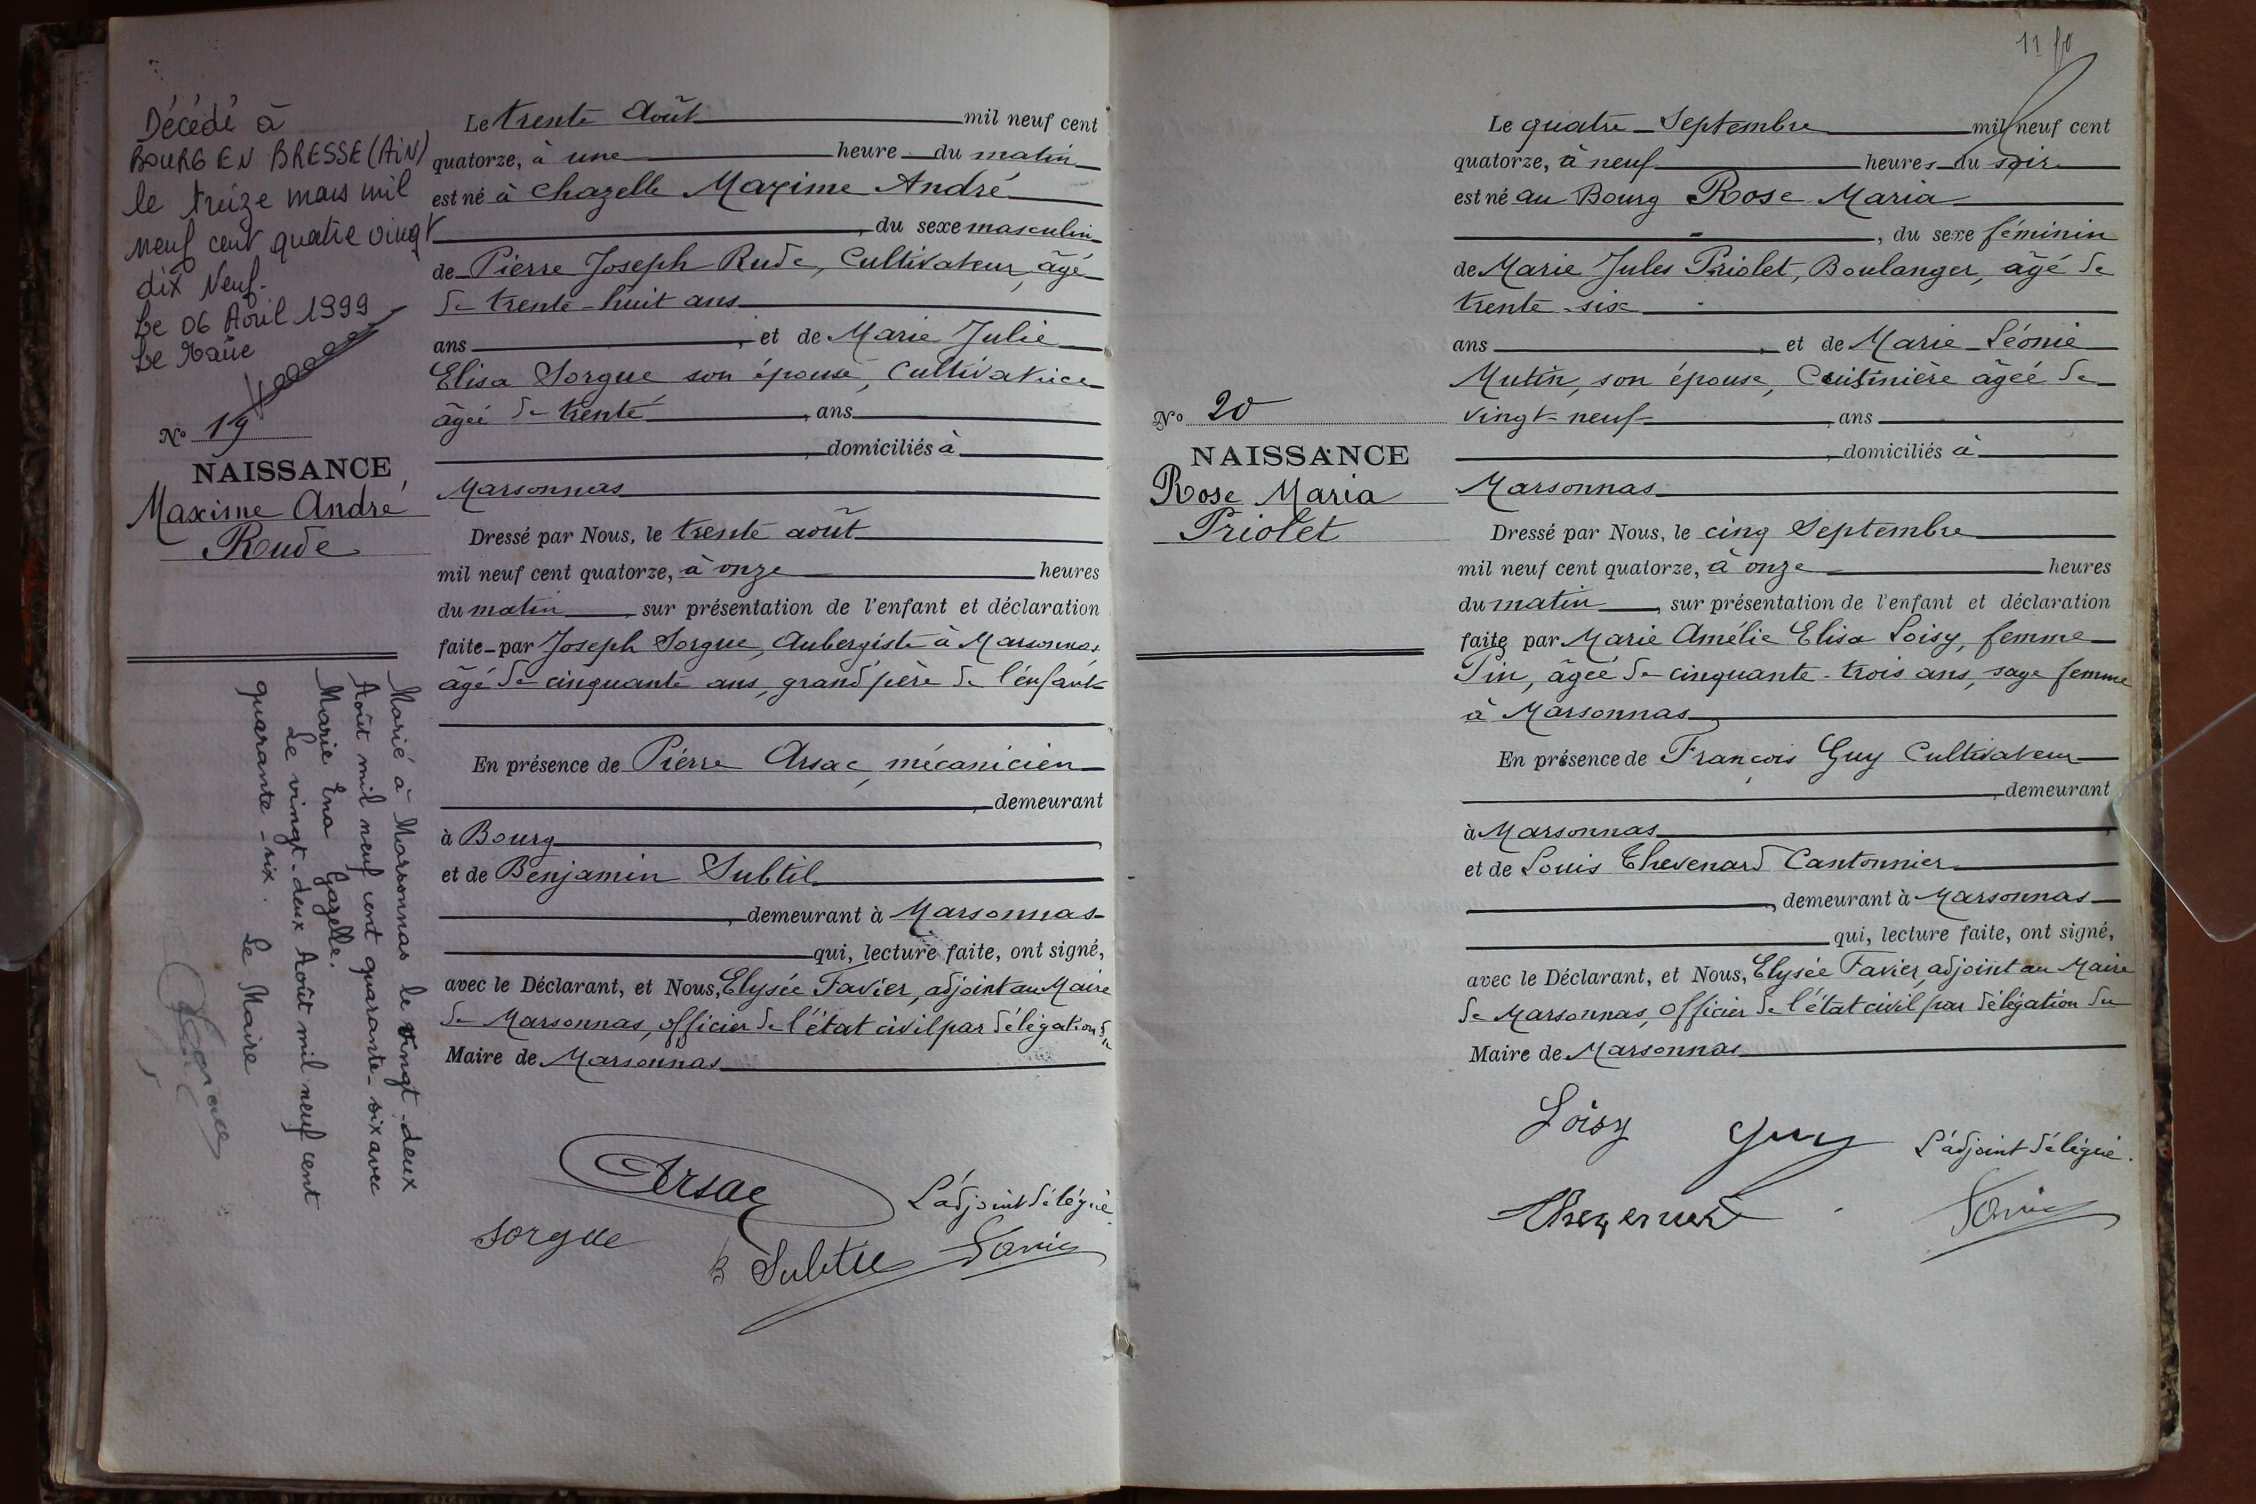 Décédé à
BOURG EN BRESSE (AiN)
le treize mars mil
neuf cent quatre vingt
dix Neuf.
Le 06 Avril 1999
Le Maire
No 19
NAISSANCE
Maxime André
Rude
Marié à Marsonnas le vingt-deux
Août mil neuf cent quarante-six avec
Marie Ena Gazelle.
Le vingt-deux Août mil neuf cent
quarante-six. Le Maire
Le trente Août mil neuf cent
quatorze, à une heure du matin
est né à Chazelle Maxime André
, du sexe masculin
de Pierre Joseph Rude, Cultivateur, âgé
de trente-huit ans
ans , et de Marie Julie
Elisa Sorgue son épouse, Cultivatrice
âgée de trente , ans
, domiciliés à
Marsonnas
Dressé par Nous, le trente août
mil neuf cent quatorze, à onze heures
du matin , sur présentation de l'enfant et déclaration
faite par Joseph Sorgue, Aubergiste à Marsonnas
âgé de cinquante ans, grand père de l'enfant
En présence de Pierre Arsac, mécanicien
, demeurant
à Bourg ,
et de Benjamin Subtil
, demeurant à Marsonnas
qui, lecture faite, ont signé,
avec le Déclarant, et Nous, Elysée Favier, adjoint au Maire
de Marsonnas, officier de l'état civil par délégation du
Maire de Marsonnas
Arsac
L'adjoint délégué
Sorgue
B Subtil
Favier
11 fo
No 20
NAISSANCE
Rose Maria
Priolet
Le quatre Septembre mil neuf cent
quatorze, à neuf heures du soir
est né au Bourg Rose Maria
, du sexe féminin
de Marie Jules Priolet, Boulanger, âgé de
trente-six
ans , et de Marie Léonie
Mutin, son épouse, Cuisinière âgée de
vingt-neuf , ans
, domiciliés à
Marsonnas
Dressé par Nous, le cinq Septembre
mil neuf cent quatorze, à onze heures
du matin , sur présentation de l'enfant et déclaration
faite par Marie Amélie Elisa Loisy, femme
Pin, âgée de cinquante-trois ans, sage femme
à Marsonnas
En présence de François Guy Cultivateur
, demeurant
à Marsonnas ,
et de Louis Thevenard Cantonnier
, demeurant à Marsonnas
qui, lecture faite, ont signé,
avec le Déclarant, et Nous, Elysée Favier, adjoint au Maire
de Marsonnas, Officier de l'état civil par délégation du
Maire de Marsonnas
Loisy
Guy
L'adjoint délégué.
Thevenard
Favier